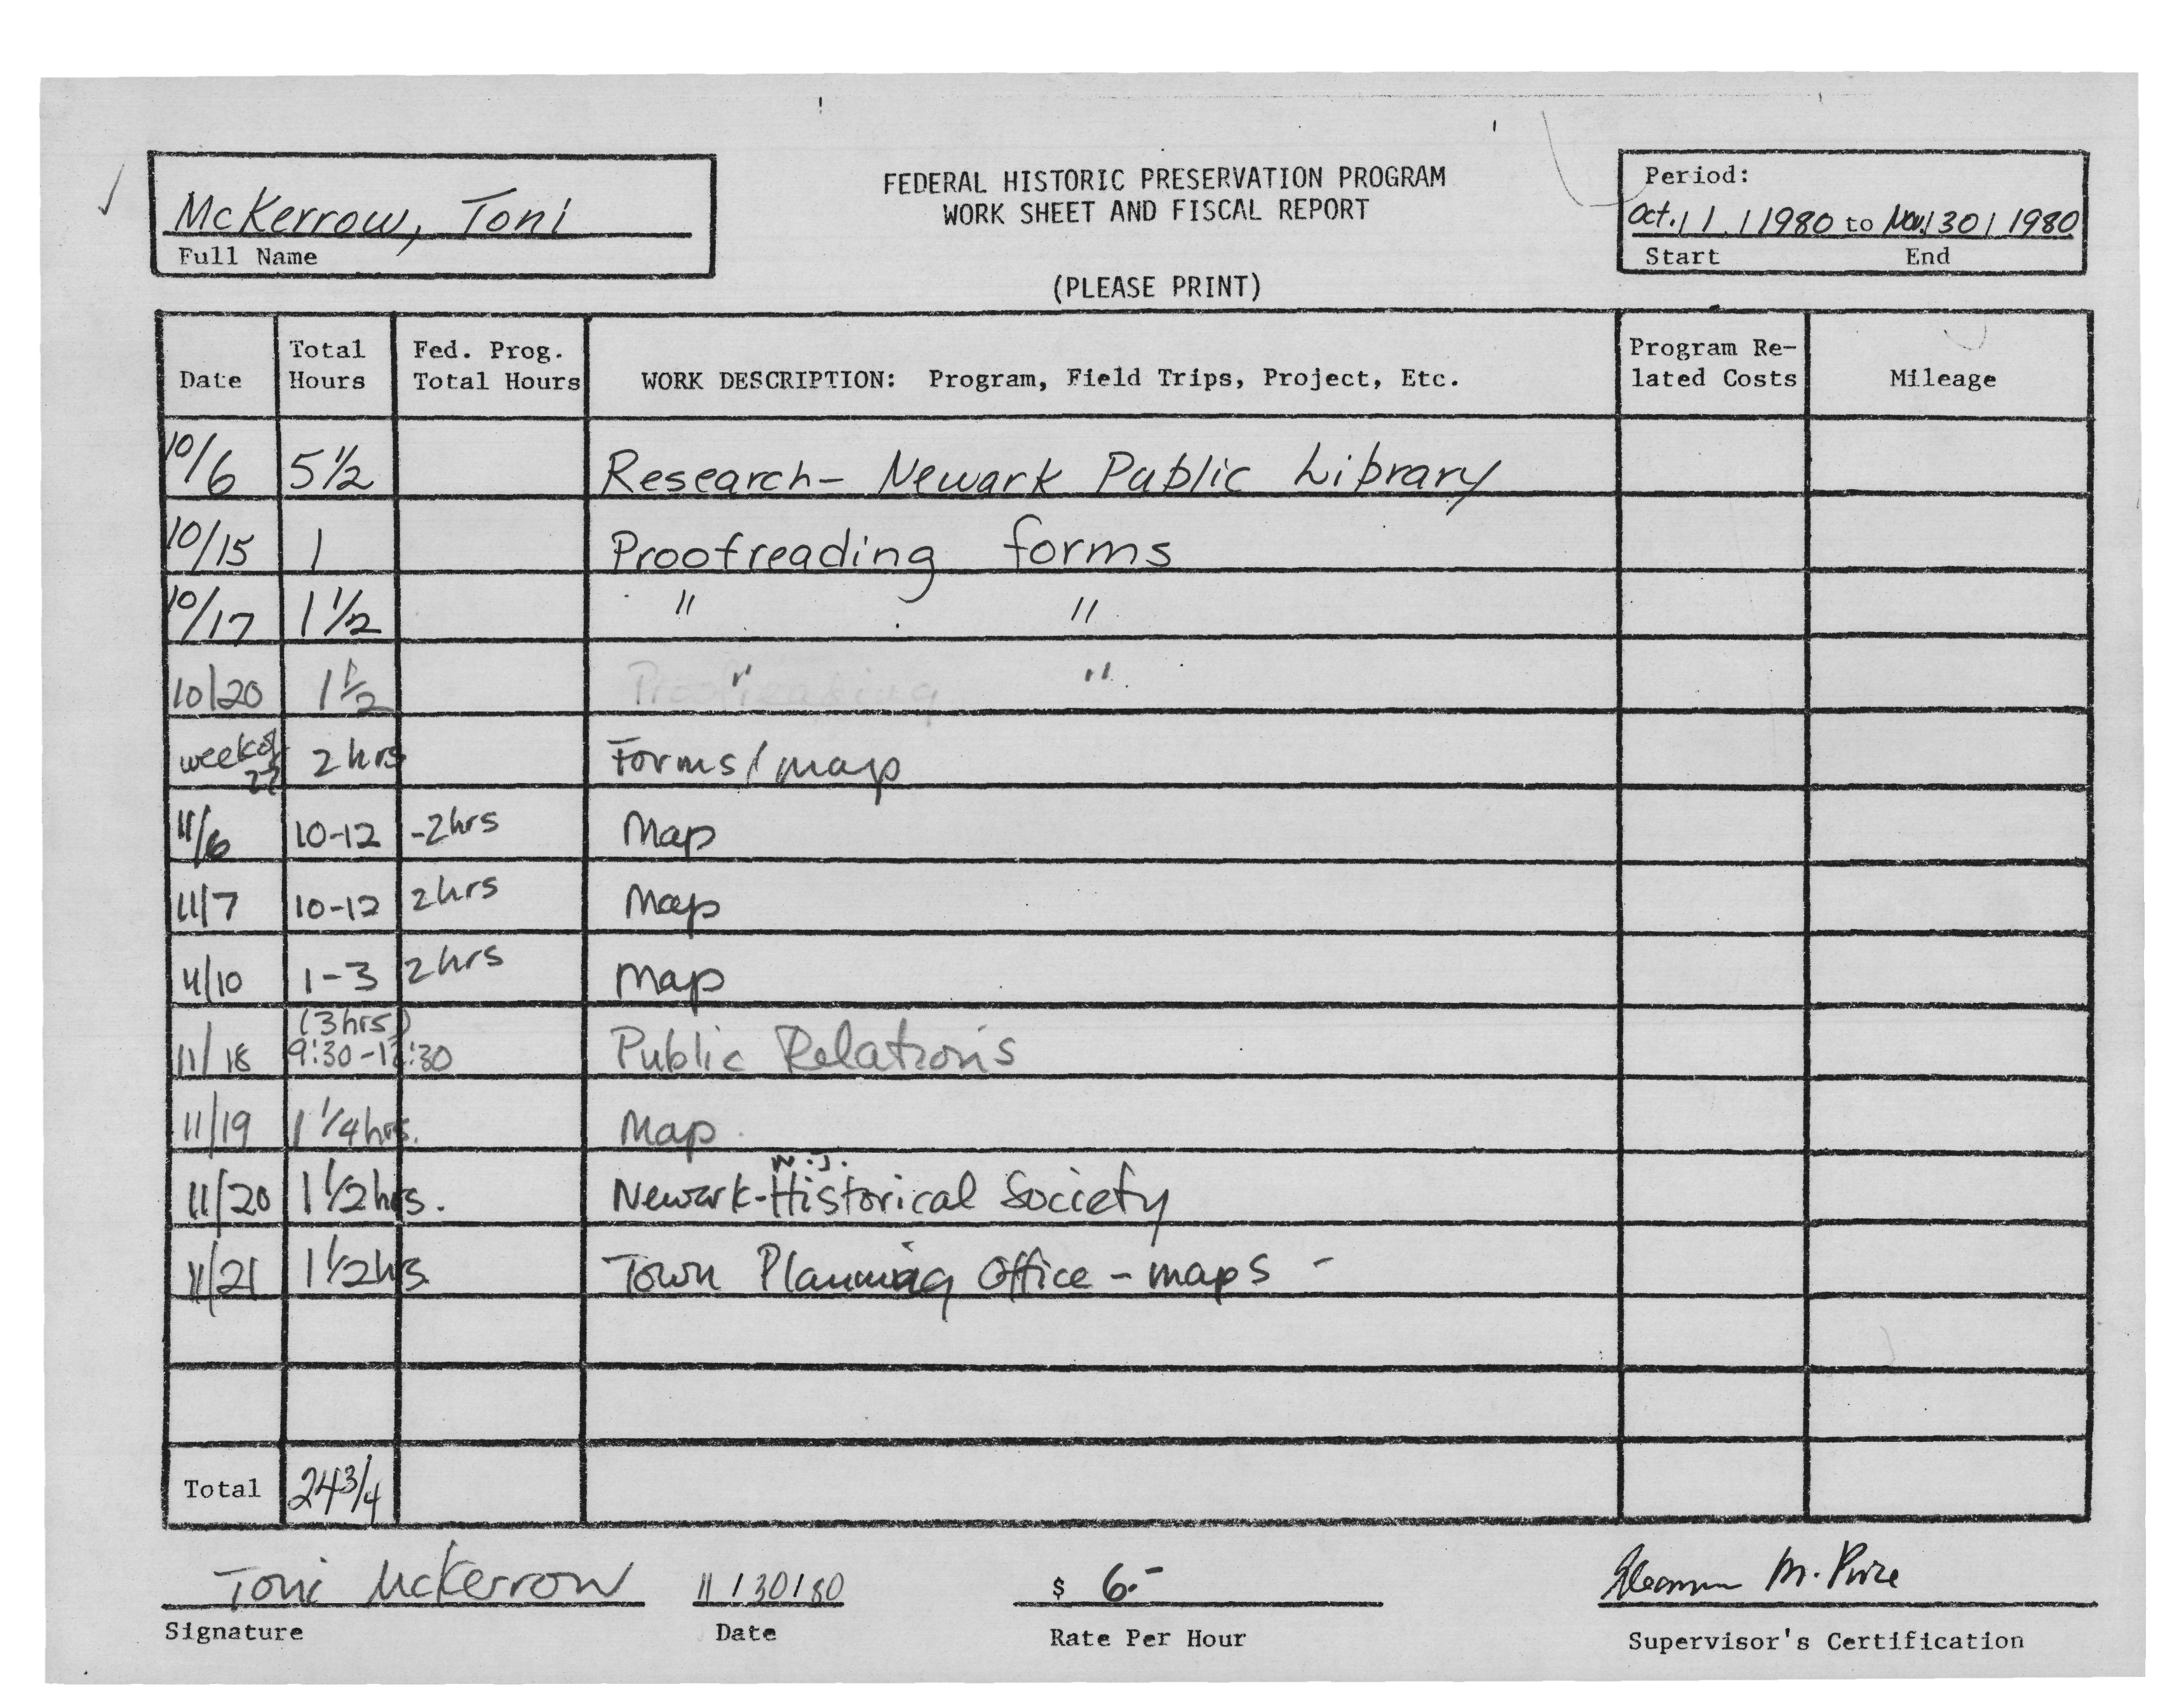 McKerrow, Toni
Full Name
FEDERAL HISTORIC PRESERVATION PROGRAM
WORK SHEET AND FISCAL REPORT
(PLEASE PRINT)
Period:
Oct. / 1 . / 1980 to Nov. / 30 / 1980
Start End
Date Total Hours Fed. Prog. Total Hours WORK DESCRIPTION: Program, Field Trips, Project, Etc. Program Re- lated Costs Mileage
10/6 5 1/2 Research- Newark Public Library
10/15 1 Proofreading forms
10/17 1 1/2 " "
10/20 1 1/2 Proofreading " "
week of 27 2 hrs Forms/map
11/6 10-12 -2hrs Map
11/7 10-12 2hrs Map
11/10 1-3 2hrs Map
11/18 (3hrs) 9:30-12:30 Public Relations
11/19 1 1/4 hrs. Map
11/20 1 1/2 hrs. Newark-N.J. Historical Society
11/21 1 1/2 hrs. Town Planning Office - maps -
Total 24 3/4
Toni McKerrow 11/30/80 $ 6.-
Signature Date Rate Per Hour Supervisor's Certification